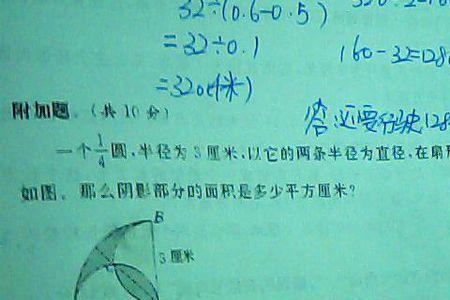 32÷(0.6-0.5)
=32÷0.1
160-32=128
=320(千米)
附加题.(共 10 分)
答:还要行驶128
一个1/4圆,半径为 3 厘米,以它的两条半径为直径,在扇形
如图。那么阴影部分的面积是多少平方厘米?
B
3 厘米